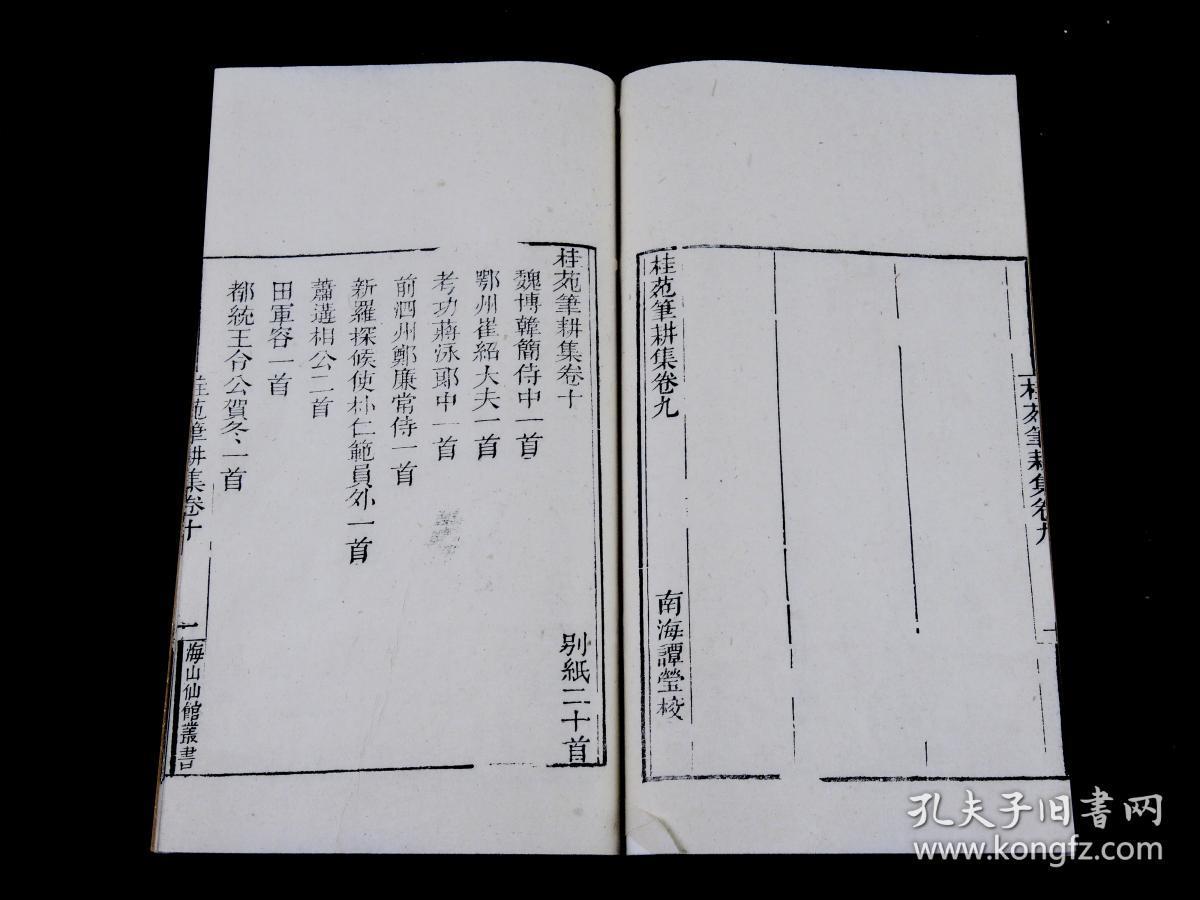 桂苑筆耕集卷九
桂苑筆耕集卷九
南海譚瑩校
桂苑筆耕集卷十
別紙二十首
魏博韓簡侍中一首
鄂州崔紹大夫一首
考功蔣泳郎中一首
前泗州鄭廉常侍一首
新羅探候使朴仁範員外一首
蕭遘相公二首
田軍容一首
都統王令公賀冬一首
桂苑筆耕集卷十
一
海山仙館叢書
孔夫子旧书网
www.kongfz.com